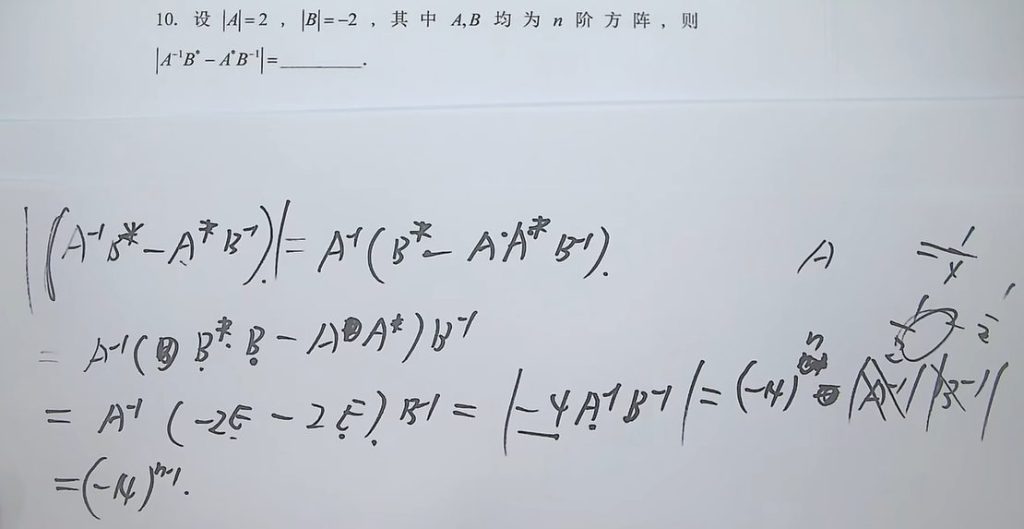 10. 设 |A|=2 , |B|=-2 , 其中 A,B 均为 n 阶方阵 , 则
|A⁻¹B* - A*B⁻¹|=________.
|(A⁻¹B* - A*B⁻¹)| = A⁻¹(B* - A·A*B⁻¹).
A
= A⁻¹(B*·B - AA*)B⁻¹
= A⁻¹(-2E - 2E)B⁻¹ = |-4A⁻¹B⁻¹| = (-4)ⁿ |A⁻¹||B⁻¹|
=(-4)ⁿ⁻¹.